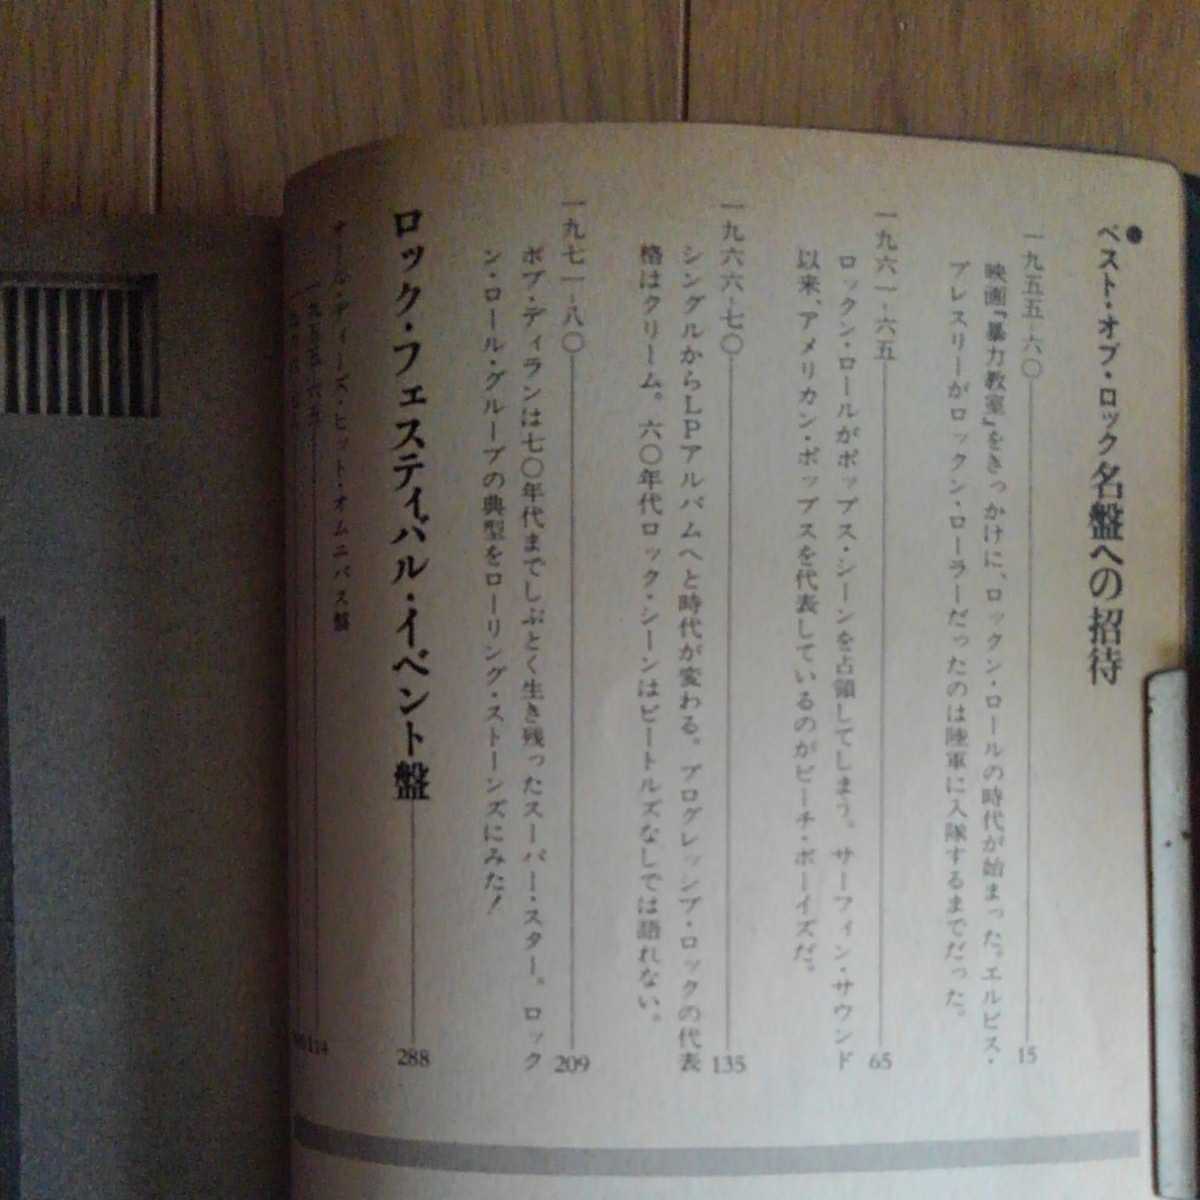 ●ベスト・オブ・ロック名盤への招待
一九五五-六〇 15
映画『暴力教室』をきっかけに、ロックン・ロールの時代が始まった。エルビス・
プレスリーがロックン・ローラーだったのは陸軍に入隊するまでだった。
一九六一-六五 65
ロックン・ロールがポップス・シーンを占領してしまう。サーフィン・サウンド
以来、アメリカン・ポップスを代表しているのがビーチ・ボーイズだ。
一九六六-七〇 135
シングルからLPアルバムへと時代が変わる。プログレッシブ・ロックの代表
格はクリーム。六〇年代ロック・シーンはビートルズなしでは語れない。
一九七一-八〇 209
ボブ・ディランは七〇年代までしぶとく生き残ったスーパー・スター。ロック
ン・ロール・グループの典型をローリング・ストーンズにみた!
ロック・フェスティバル・イベント盤 288
オールディーズ・ヒット・オムニバス盤
一九五五-六五 114